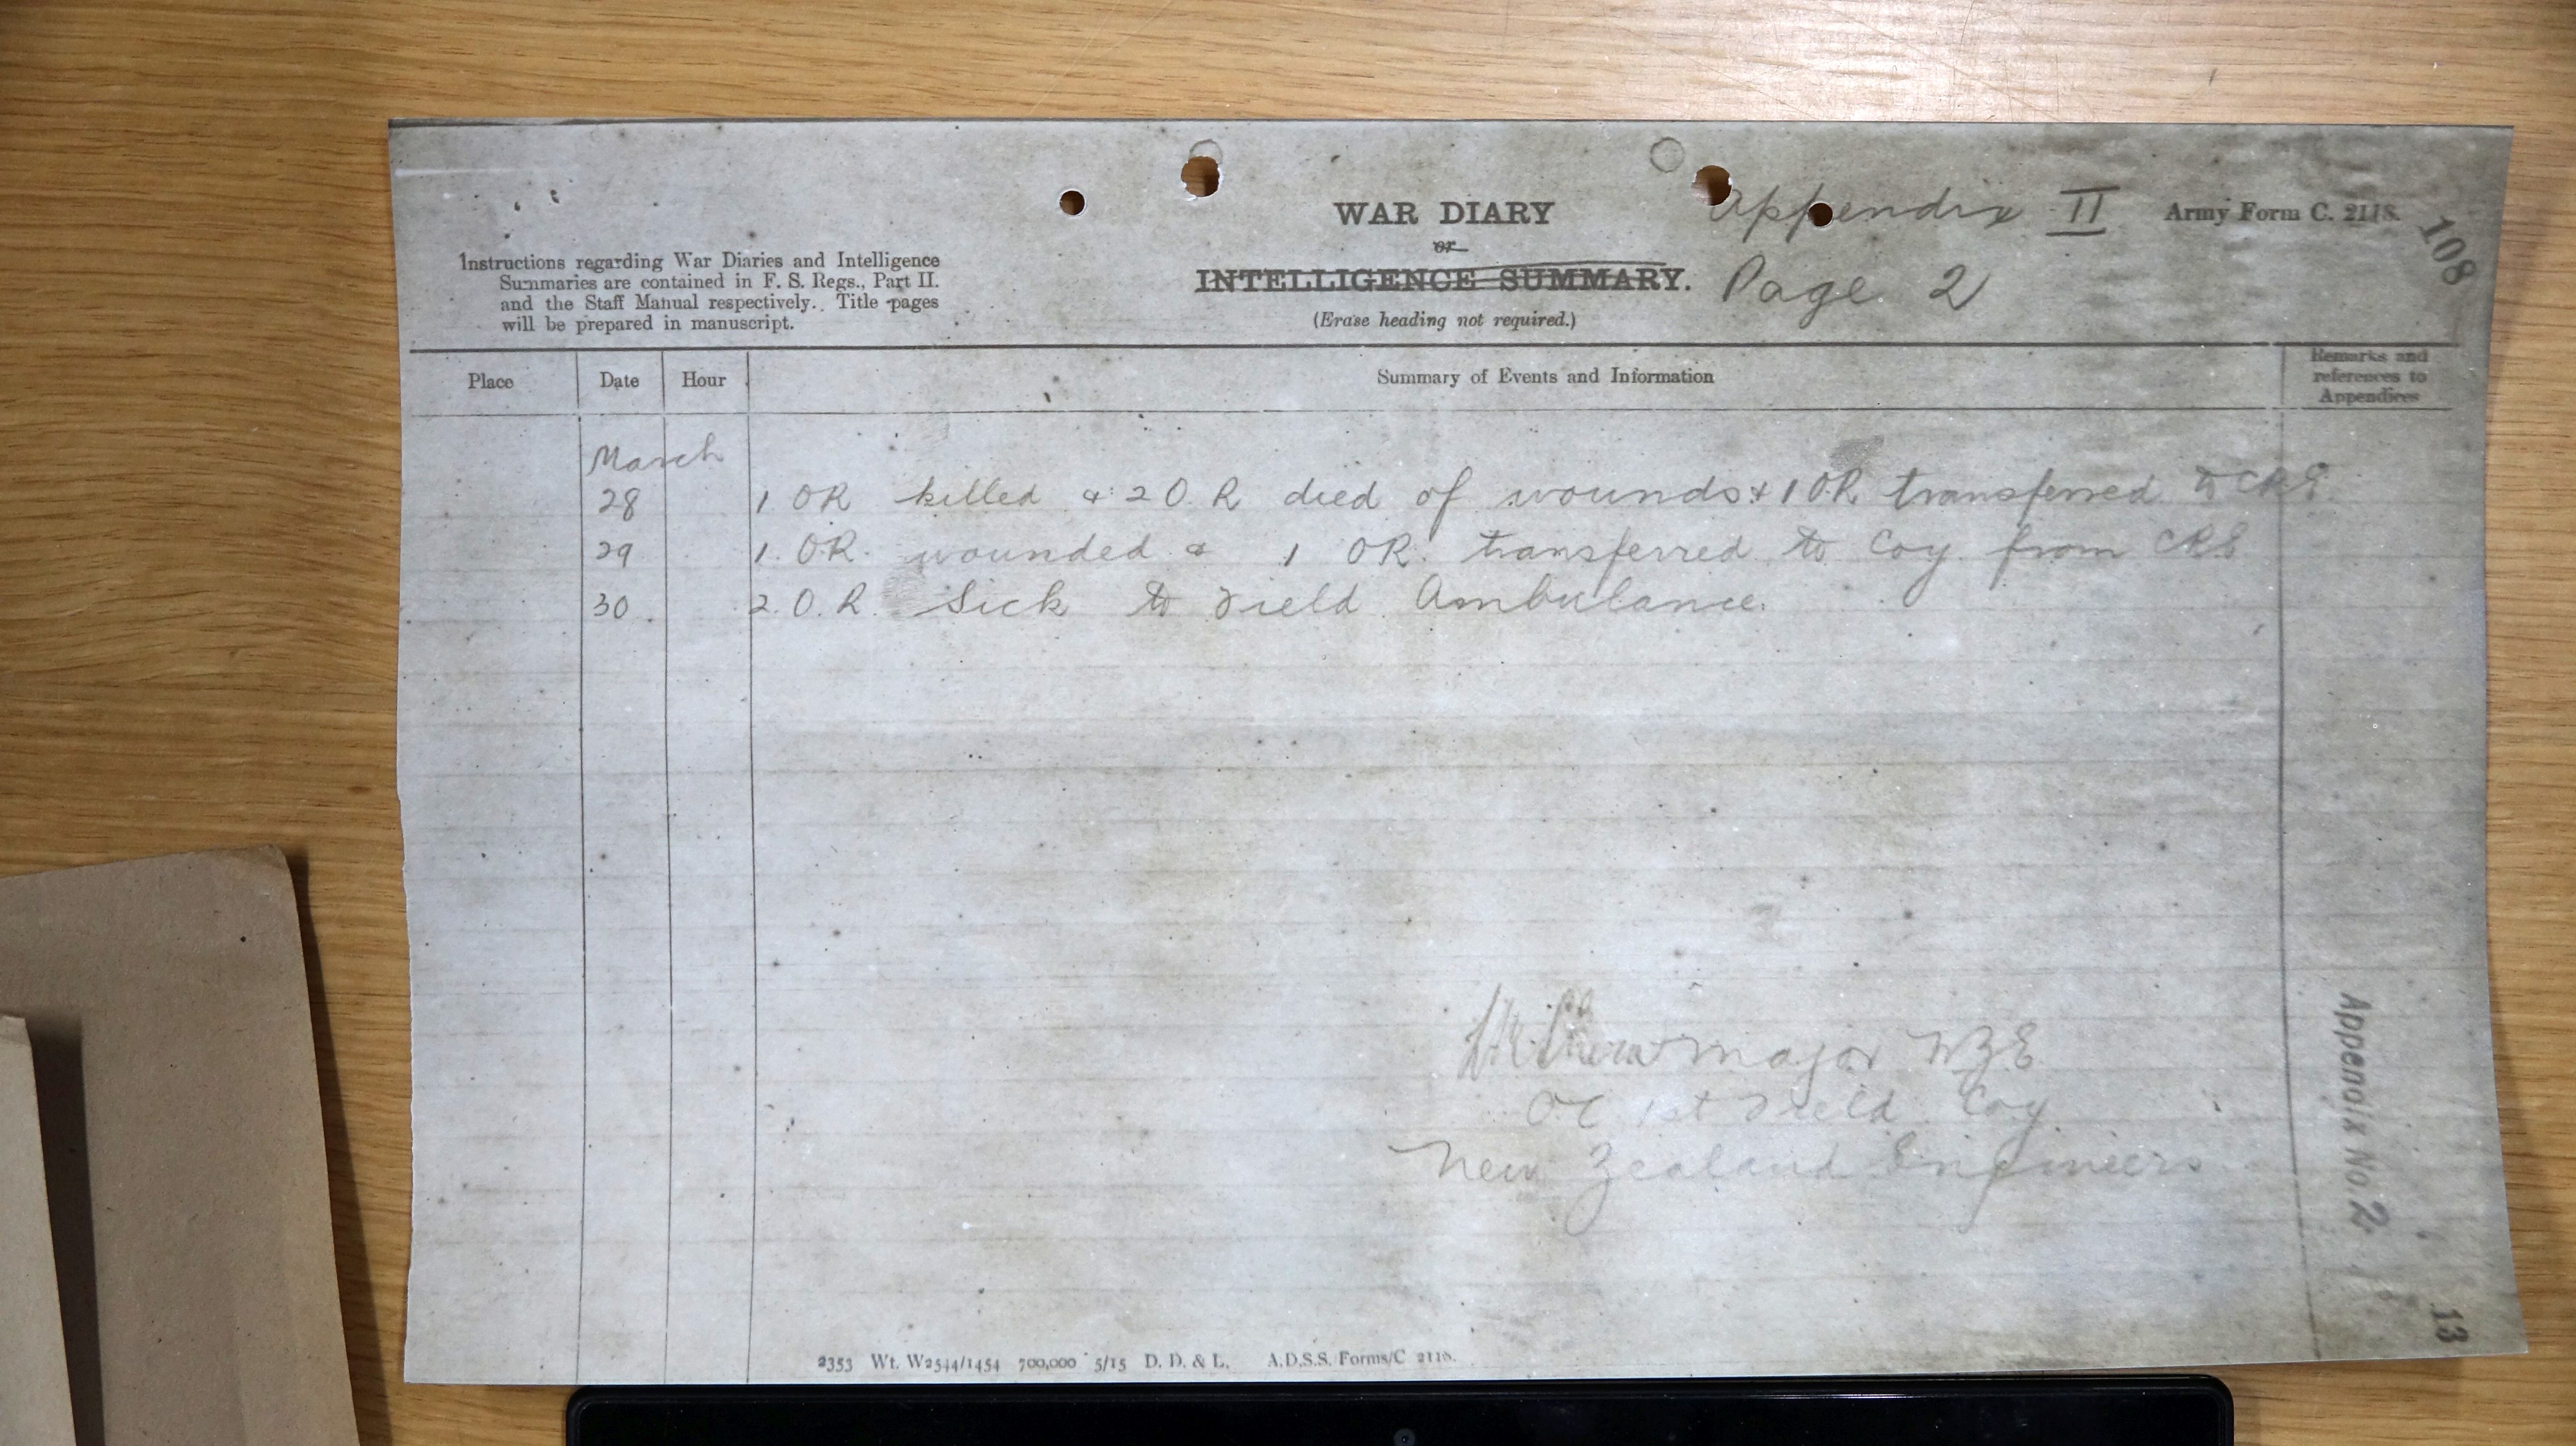 WAR DIARY
or
INTELLIGENCE SUMMARY.
(Erase heading not required.)
Appendix II
Page 2
Army Form C. 2118.
108
Instructions regarding War Diaries and Intelligence
Summaries are contained in F. S. Regs., Part II.
and the Staff Manual respectively. Title pages
will be prepared in manuscript.
Place
Date
Hour
Summary of Events and Information
Remarks and
references to
Appendices
March
28 1 OR killed & 2 O.R died of wounds & 1 OR transferred to CRE
29 1. OR. wounded & 1 OR. transferred to Coy from CRE
30 2. O.R. Sick to Field Ambulance.
Major NZE
OC 1st Field Coy
New Zealand Engineers
Appendix No. 2
13
2353 Wt. W2544/1454 700,000 5/15 D. D. & L. A.D.S.S. Forms/C 2118.